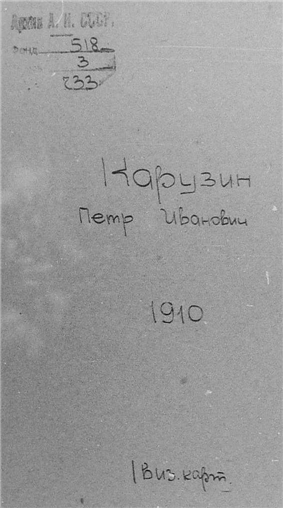 Архив А. Н. СССР.
Фонд 518
3
733
Карузин
Петр Иванович
1910
1 виз. карт.